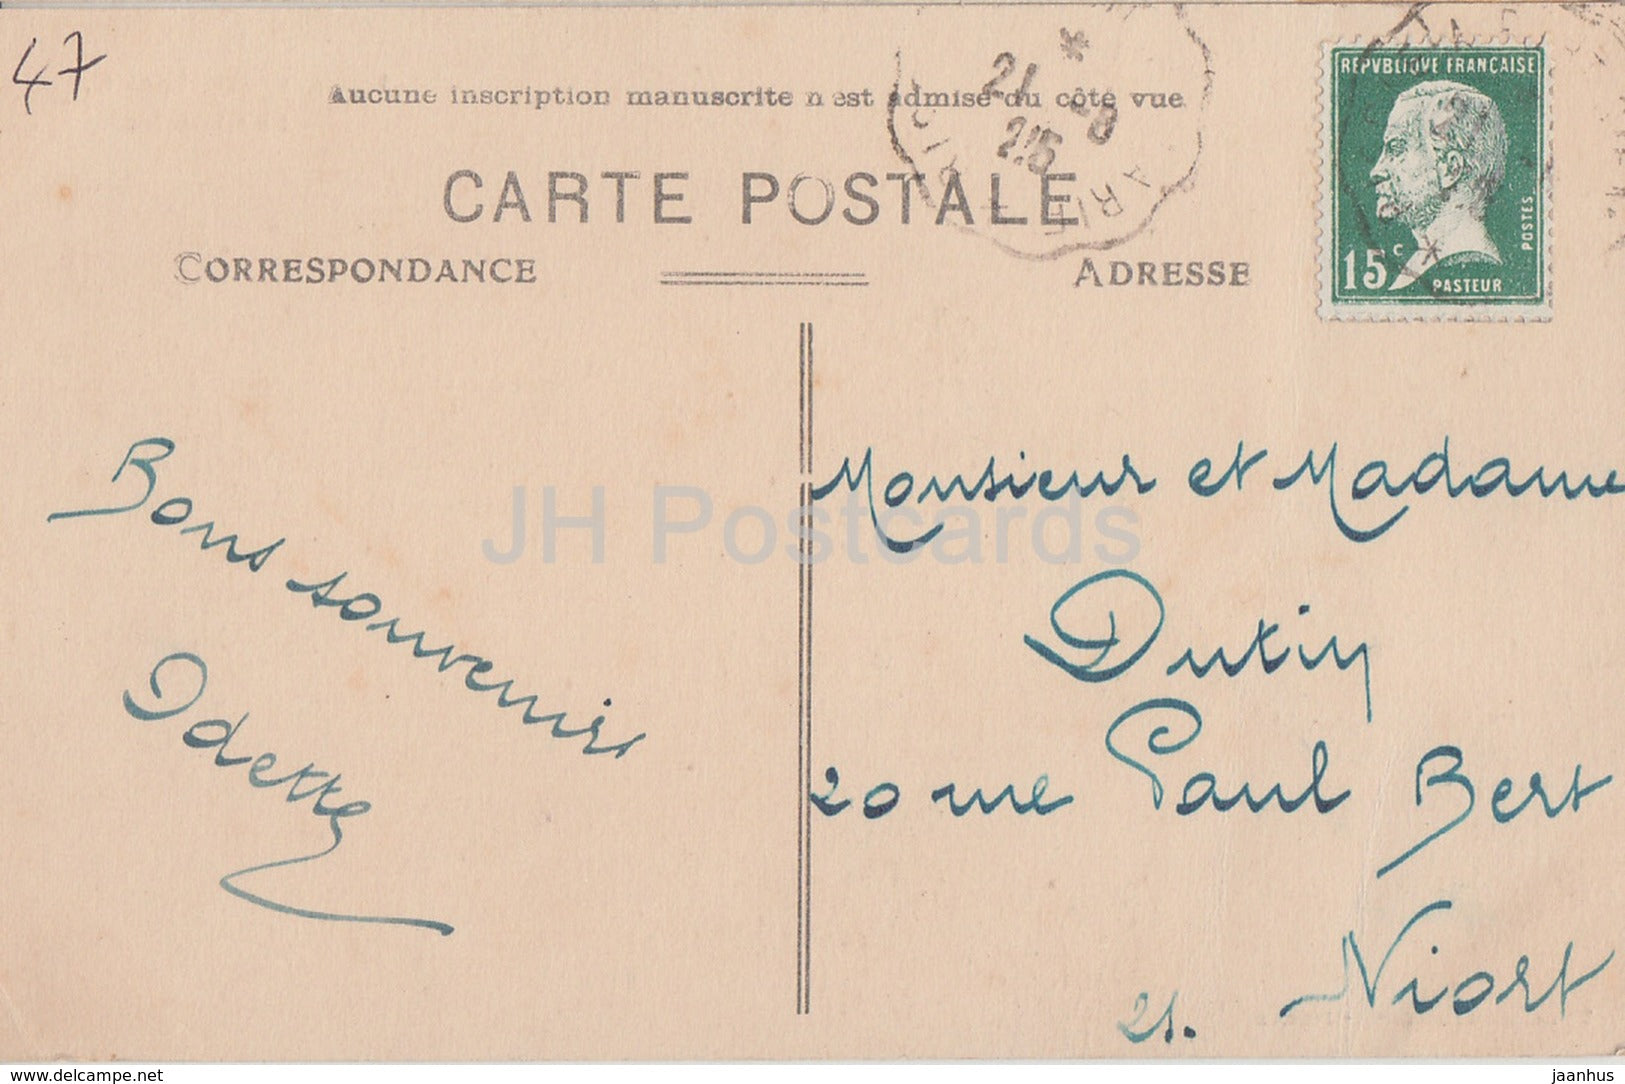 47
Aucune inscription manuscrite n'est admise du côté vue
CARTE POSTALE
CORRESPONDANCE
ADRESSE
21 -8
25
RÉPVBLIQVE FRANÇAISE
POSTES
15c
PASTEUR
Bons souvenirs
Odette
Monsieur et Madame
20 rue Paul Bert
Niort
2s.
JH Postcards
delcampe.net
jaanhus